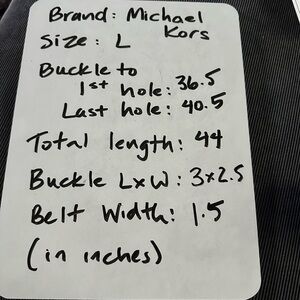 Brand: Michael
Kors
Size: L
Buckle to
1st hole: 36.5
Last hole: 40.5
Total length: 44
Buckle LxW: 3x2.5
Belt Width: 1.5
(in inches)